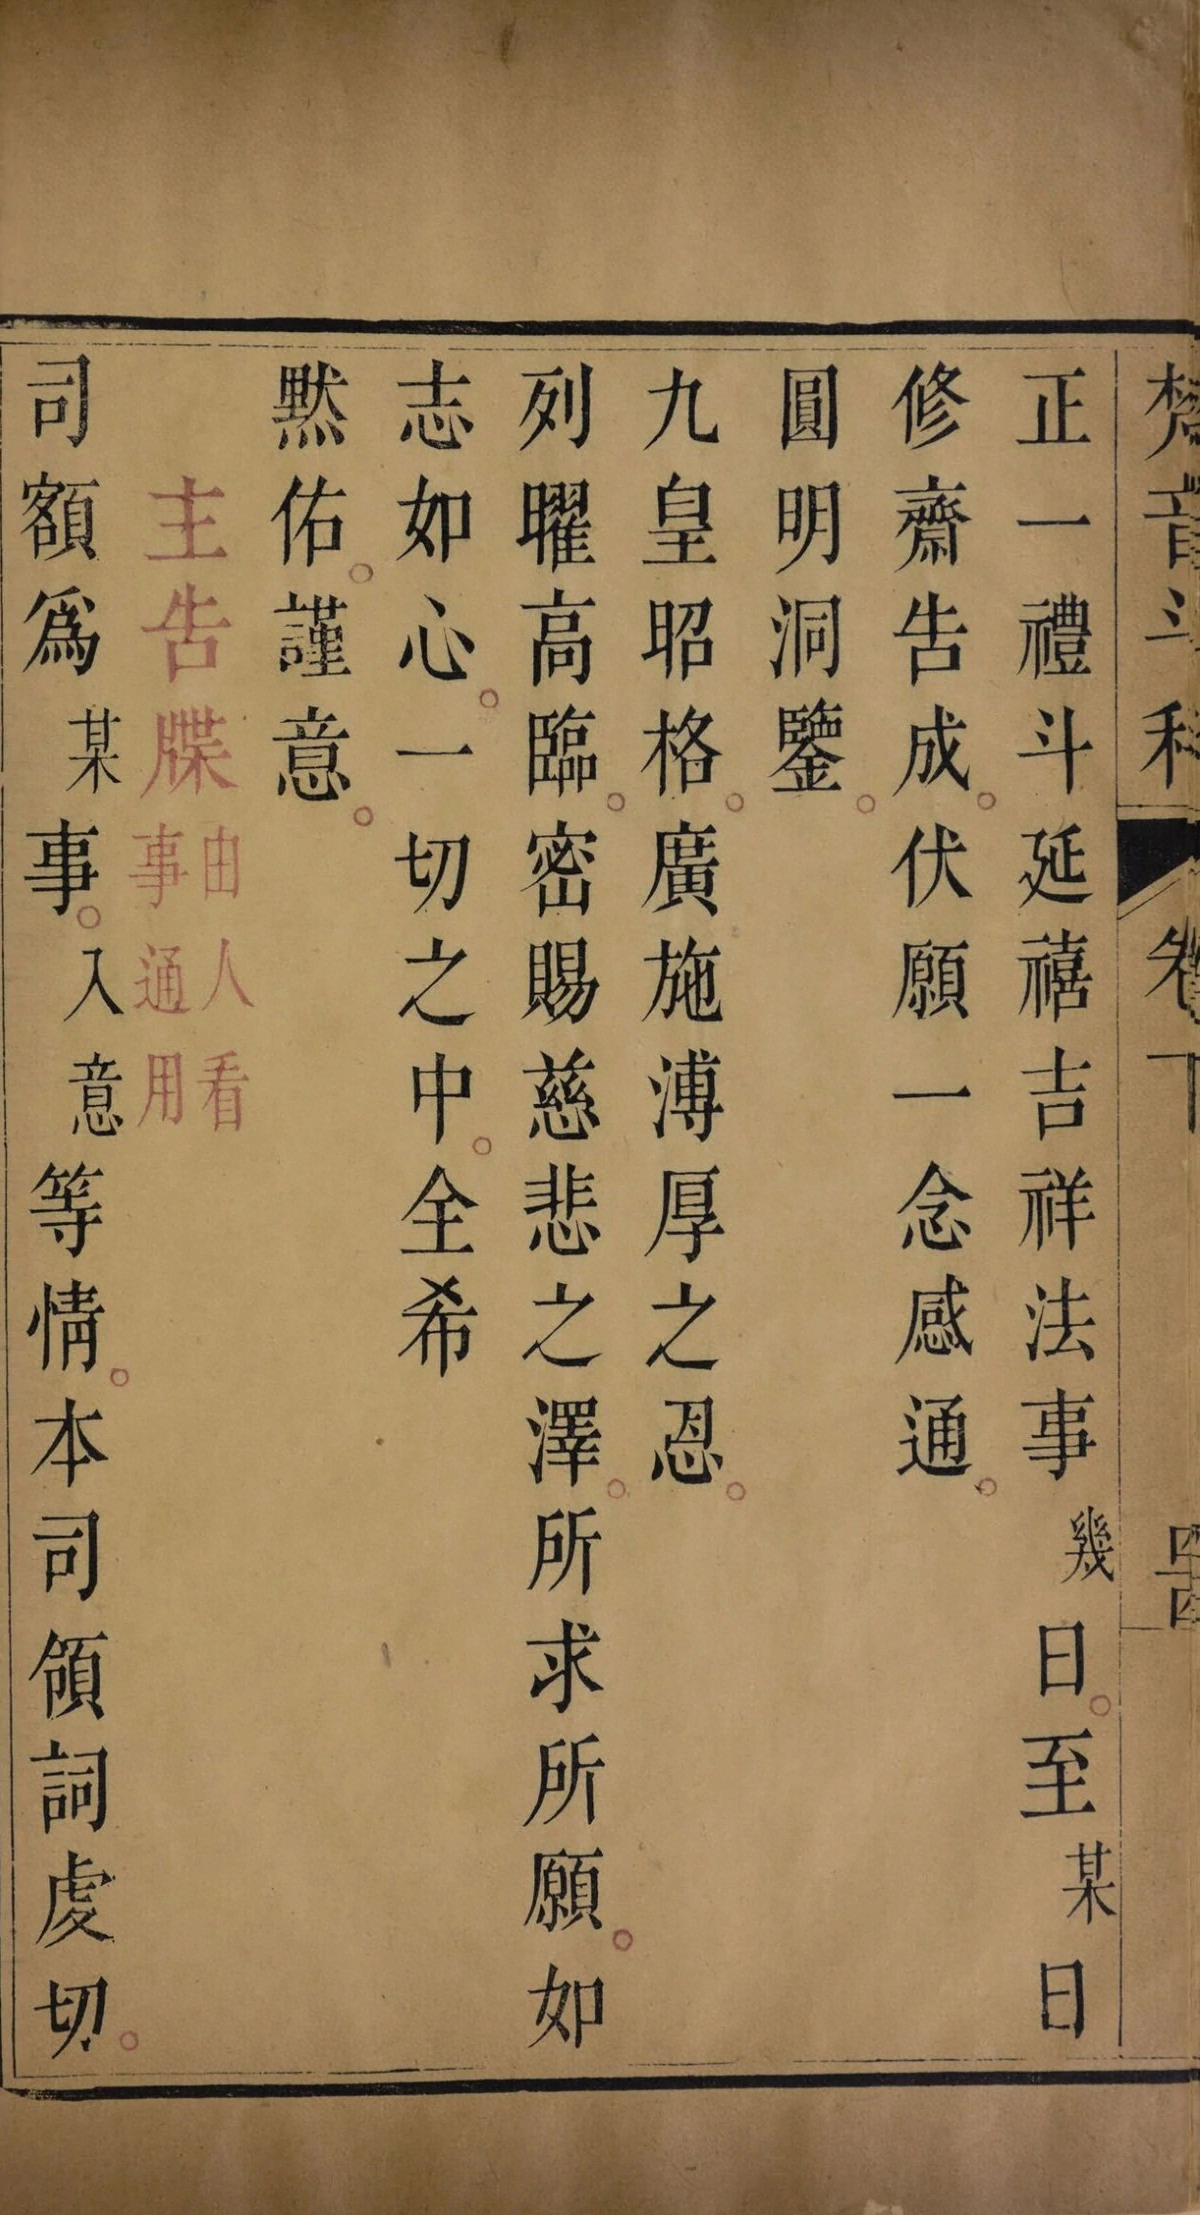 梵音斗科 卷下 四十四
正一禮斗延禧吉祥法事幾日。至某日
修齋告成。伏願一念感通。
圓明洞鑒。
九皇昭格。廣施溥厚之恩。
列曜高臨。密賜慈悲之澤。所求所願。如
志如心。一切之中。全希
默佑。謹意。
主告牒由人看事通用
司額爲某事。入意等情。本司領詞虔切。